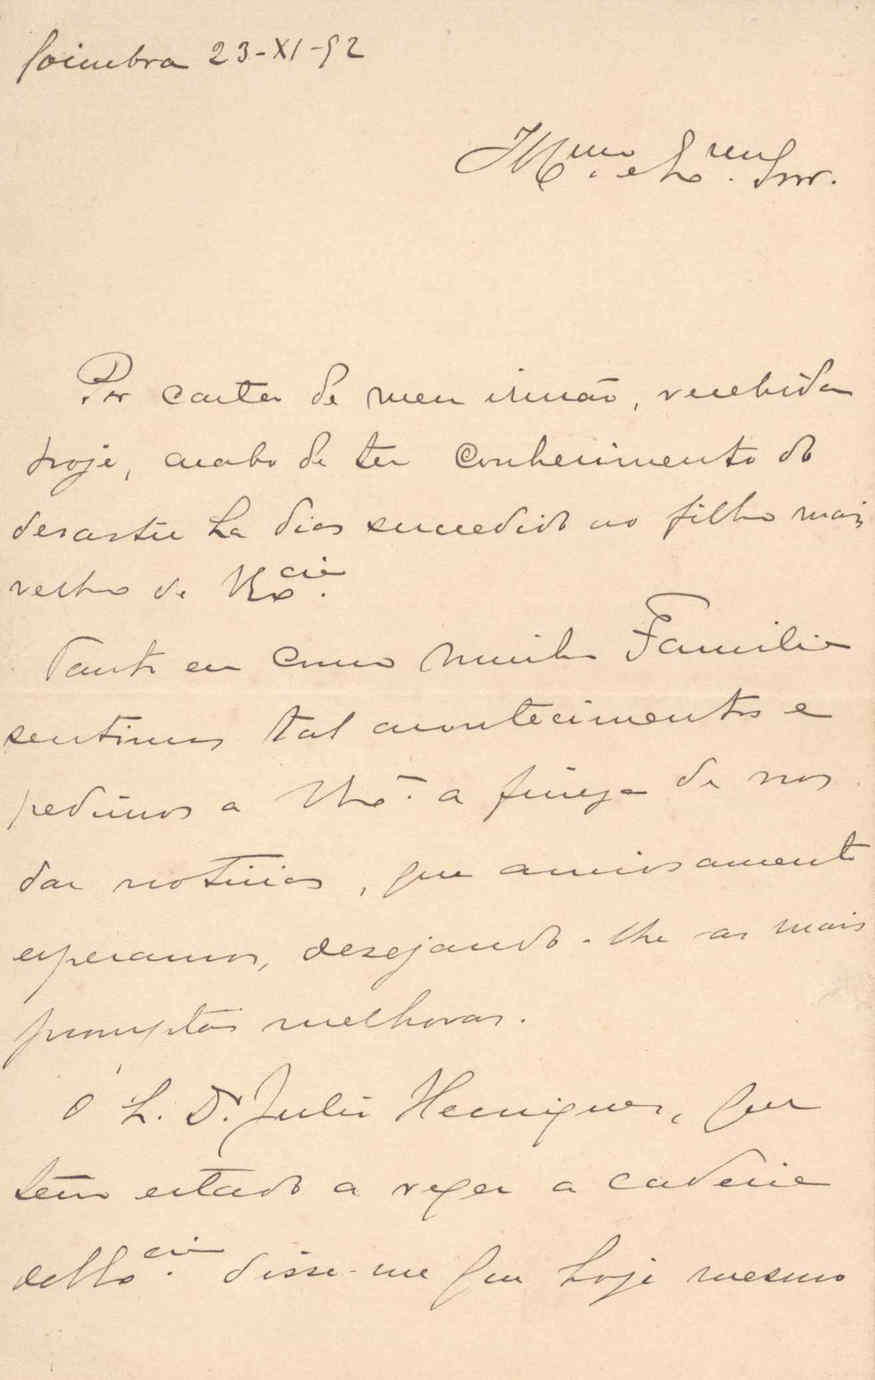 Coimbra 23-XI-92
Illmo. e Exmo. Snr.
Por carta de meu irmão, recebida
hoje, acabo de ter conhecimento do
desastre ha dias succedido ao filho mais
velho de V. Excia.
Tanto eu como minha Familia
sentimos tal acontecimento e
pedimos a V. Exa. a fineza de nos
dar noticias, que anciosamente
esperamos, desejando-lhe as mais
promptas melhoras.
O S. Dr. Julio Henriques, que
tem estado a reger a cadeira
de V. Excia. disse-me que hoje mesmo